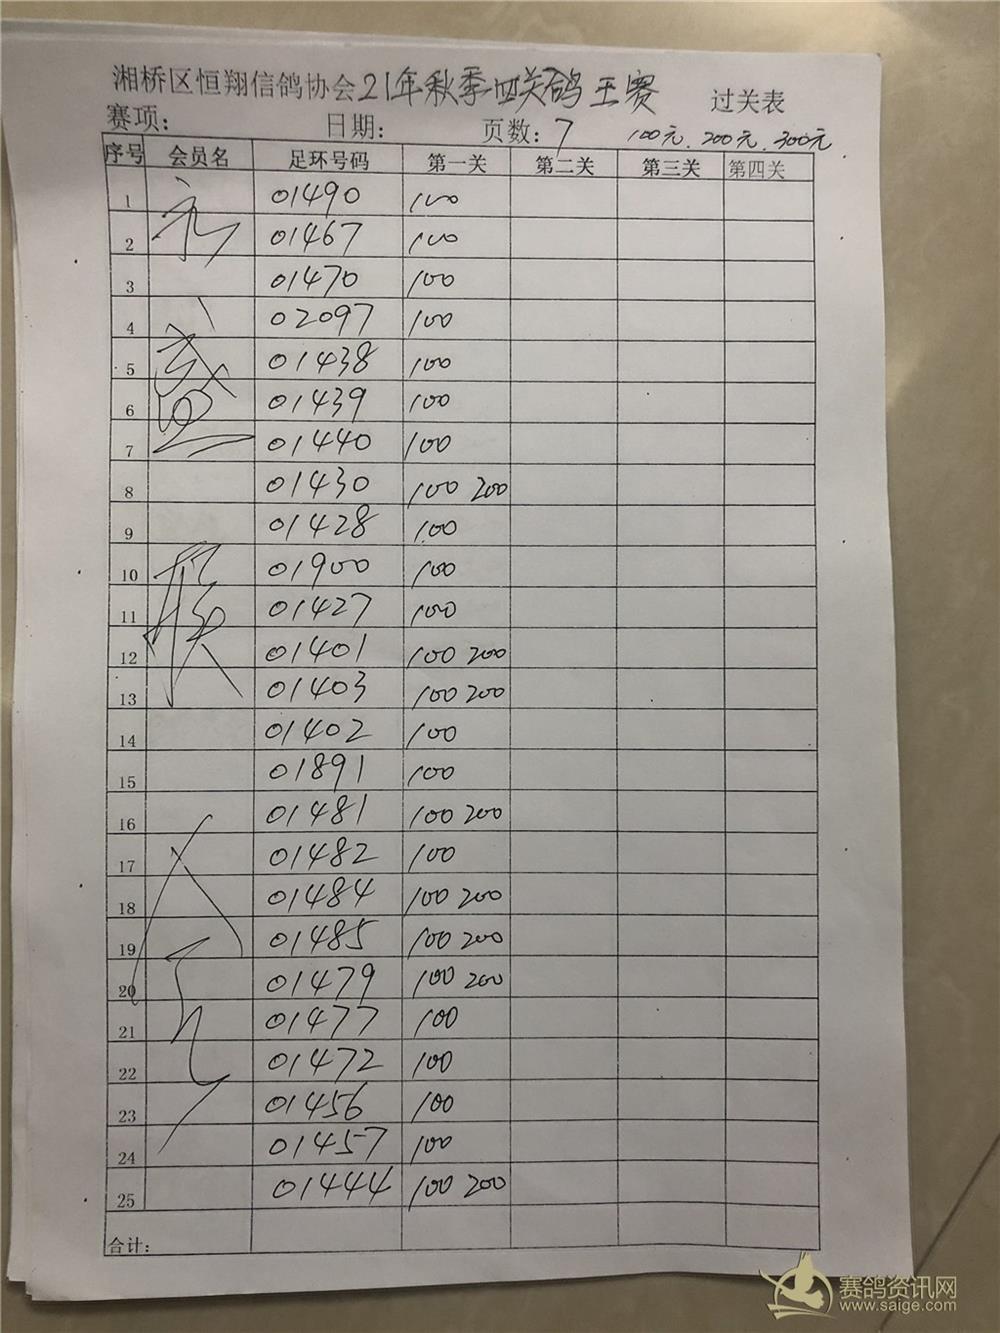 湘桥区恒翔信鸽协会21年秋季四关鸽王赛 过关表
赛项: 日期: 页数:7 100元、200元、300元
序号 会员名 足环号码 第一关 第二关 第三关 第四关
1 01490 100
2 01467 100
3 01470 100
4 02097 100
5 01438 100
6 01439 100
7 01440 100
8 01430 100 200
9 01428 100
10 01900 100
11 01427 100
12 01401 100 200
13 01403 100 200
14 01402 100
15 01891 100
16 01481 100 200
17 01482 100
18 01484 100 200
19 01485 100 200
20 01479 100 200
21 01477 100
22 01472 100
23 01456 100
24 01457 100
25 01444 100 200
合计:
赛鸽资讯网
www.saige.com